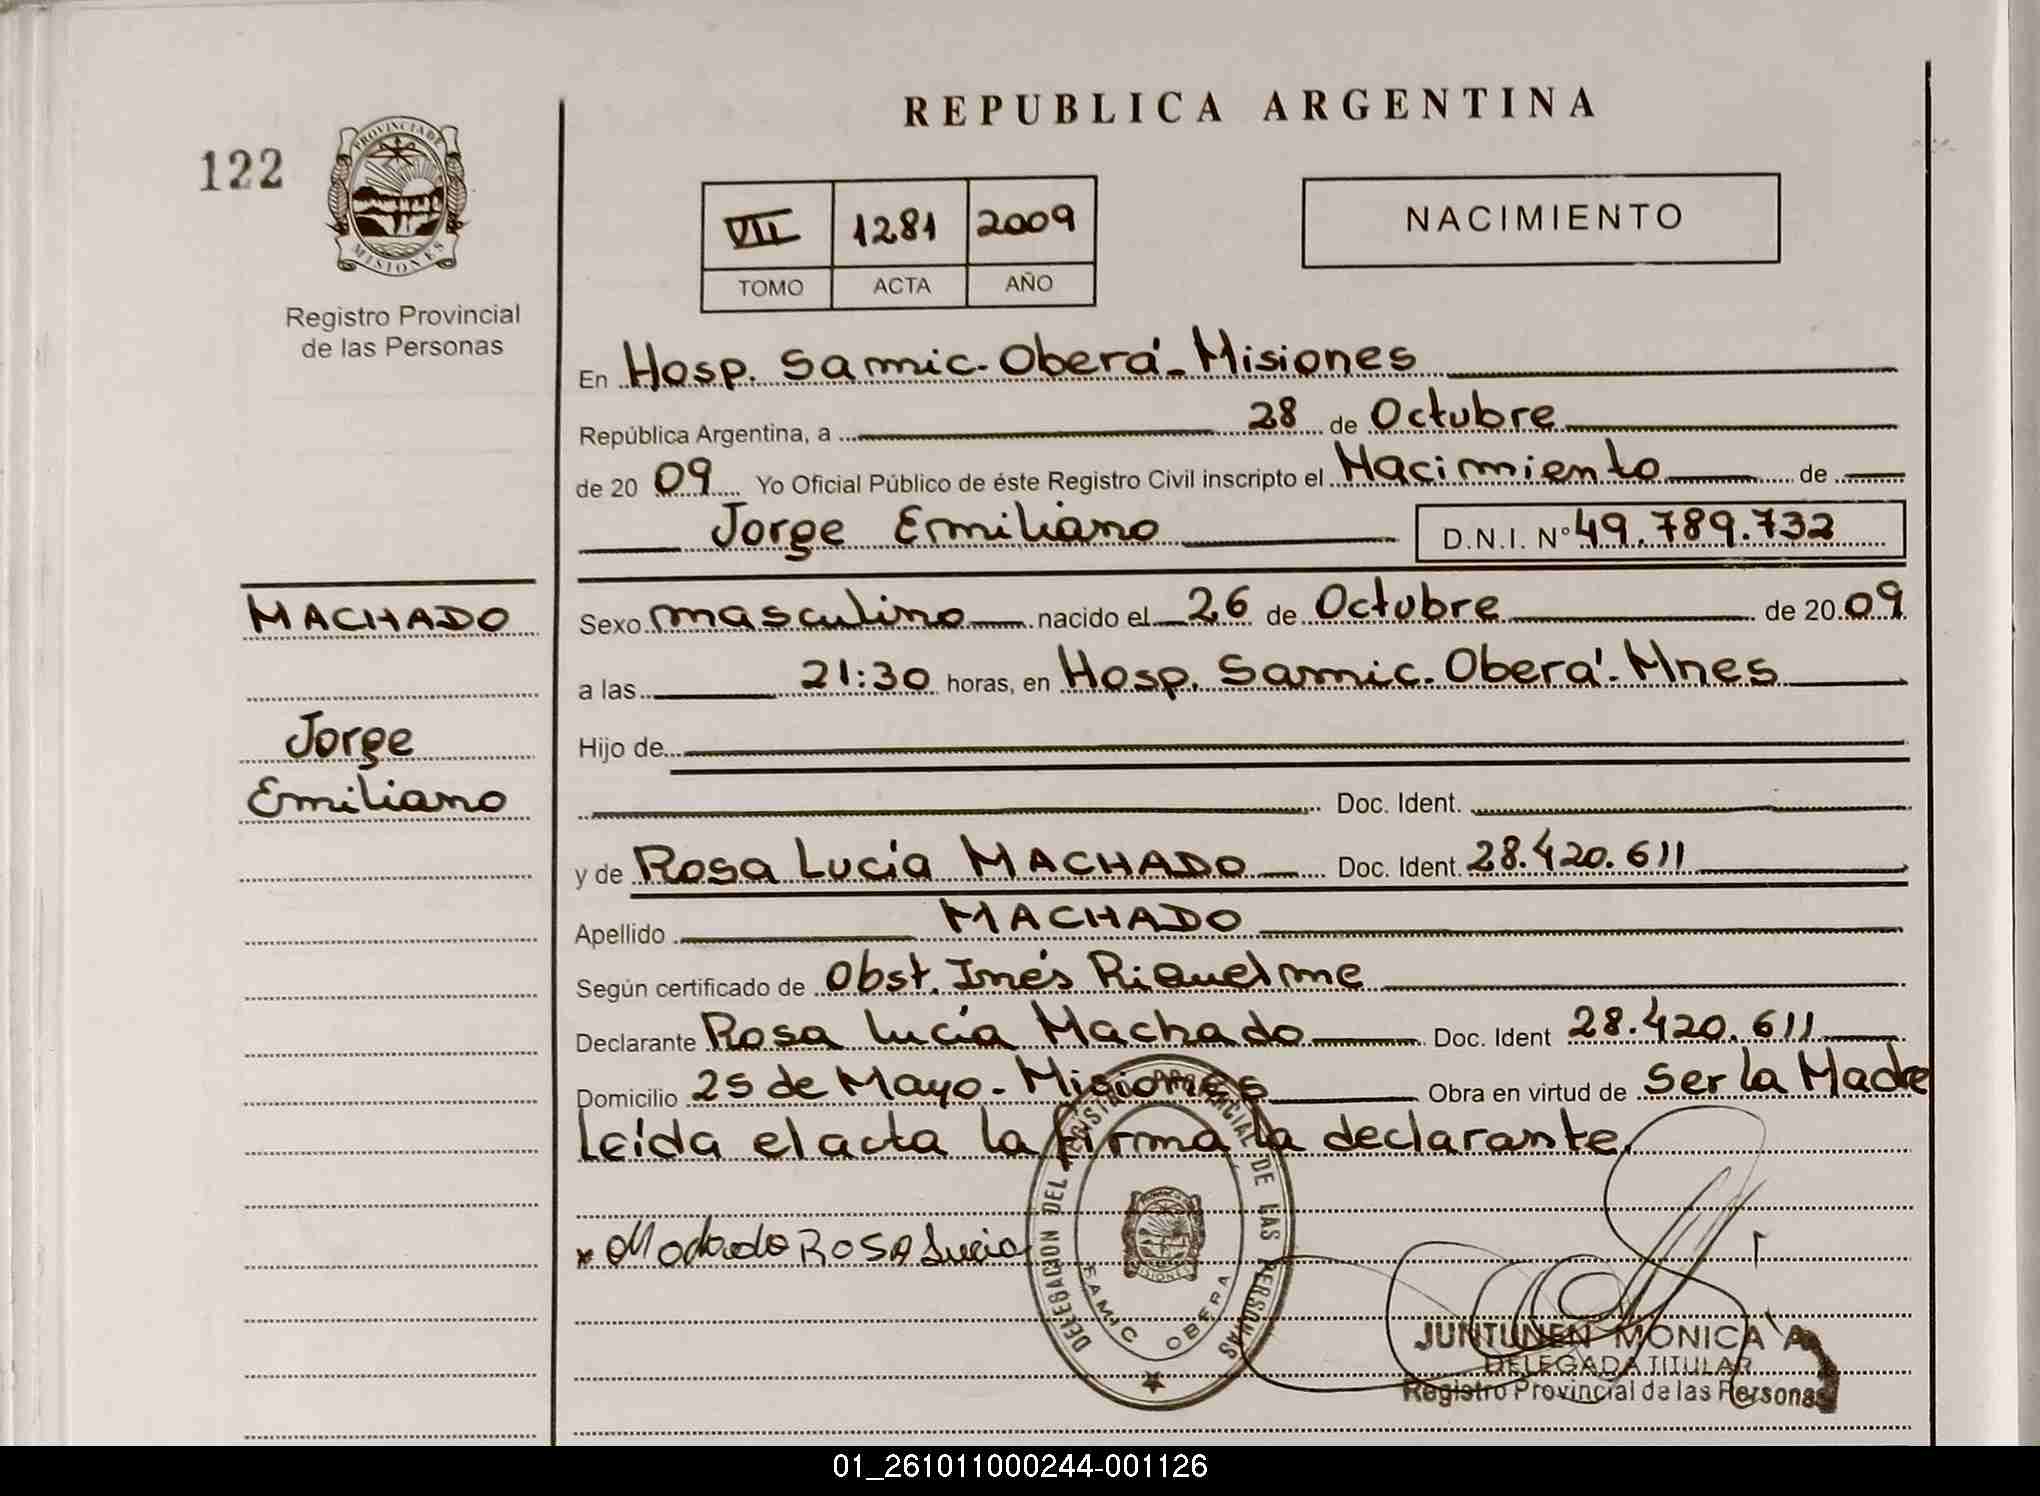 REPUBLICA ARGENTINA
122
PROVINCIA DE
MISIONES
Registro Provincial
de las Personas
VII 1281 2009
TOMO ACTA AÑO
NACIMIENTO
En Hosp. Samic-Oberá-Misiones
República Argentina, a 28 de Octubre
de 2009 Yo Oficial Público de éste Registro Civil inscripto el Nacimiento de
Jorge Emiliano D.N.I. Nº 49.789.732
MACHADO
Jorge
Emiliano
Sexo masculino nacido el 26 de Octubre de 2009
a las 21:30 horas, en Hosp. Samic. Oberá-Mnes
Hijo de
Doc. Ident.
y de Rosa Lucía MACHADO Doc. Ident. 28.420.611
Apellido MACHADO
Según certificado de Obst. Inés Riquelme
Declarante Rosa Lucía Machado Doc. Ident 28.420.611
Domicilio 25 de Mayo-Misiones Obra en virtud de ser la Madre
Leída el acta la firma la declarante.
Machado ROSA Lucia
DELEGACION DEL REGISTRO PROVINCIAL DE LAS PERSONAS
SAMIC OBERA
MISIONES
JUNTUNEN MONICA A.
DELEGADA TITULAR
Registro Provincial de las Personas
01_261011000244-001126